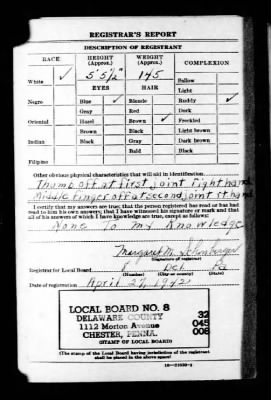 REGISTRAR'S REPORT
DESCRIPTION OF REGISTRANT
RACE HEIGHT (Approx.) WEIGHT (Approx.) COMPLEXION
White ✓ 5 5½" 145 Sallow
EYES HAIR Light
Negro Blue ✓ Blonde Ruddy ✓
Gray Red Dark
Oriental Hazel Brown ✓ Freckled
Brown Black Light brown
Indian Black Gray Dark brown
Bald Black
Filipino
Other obvious physical characteristics that will aid in identification
Thumb off at first joint right hand
Middle finger off at second joint rt hand
I certify that my answers are true; that the person registered has read or has had
read to him his own answers; that I have witnessed his signature or mark and that
all of his answers of which I have knowledge are true, except as follows:
None To my Knowledge
Margaret M.
Signature of registrar
Registrar for Local Board 8 Del Pa
(Number) (City or county) (State)
Date of registration April 27, 1942
LOCAL BOARD NO. 8
DELAWARE COUNTY
1112 Morton Avenue
CHESTER, PENNA.
32
045
008
(STAMP OF LOCAL BOARD)
(The stamp of the Local Board having jurisdiction of the registrant
shall be placed in the above space)